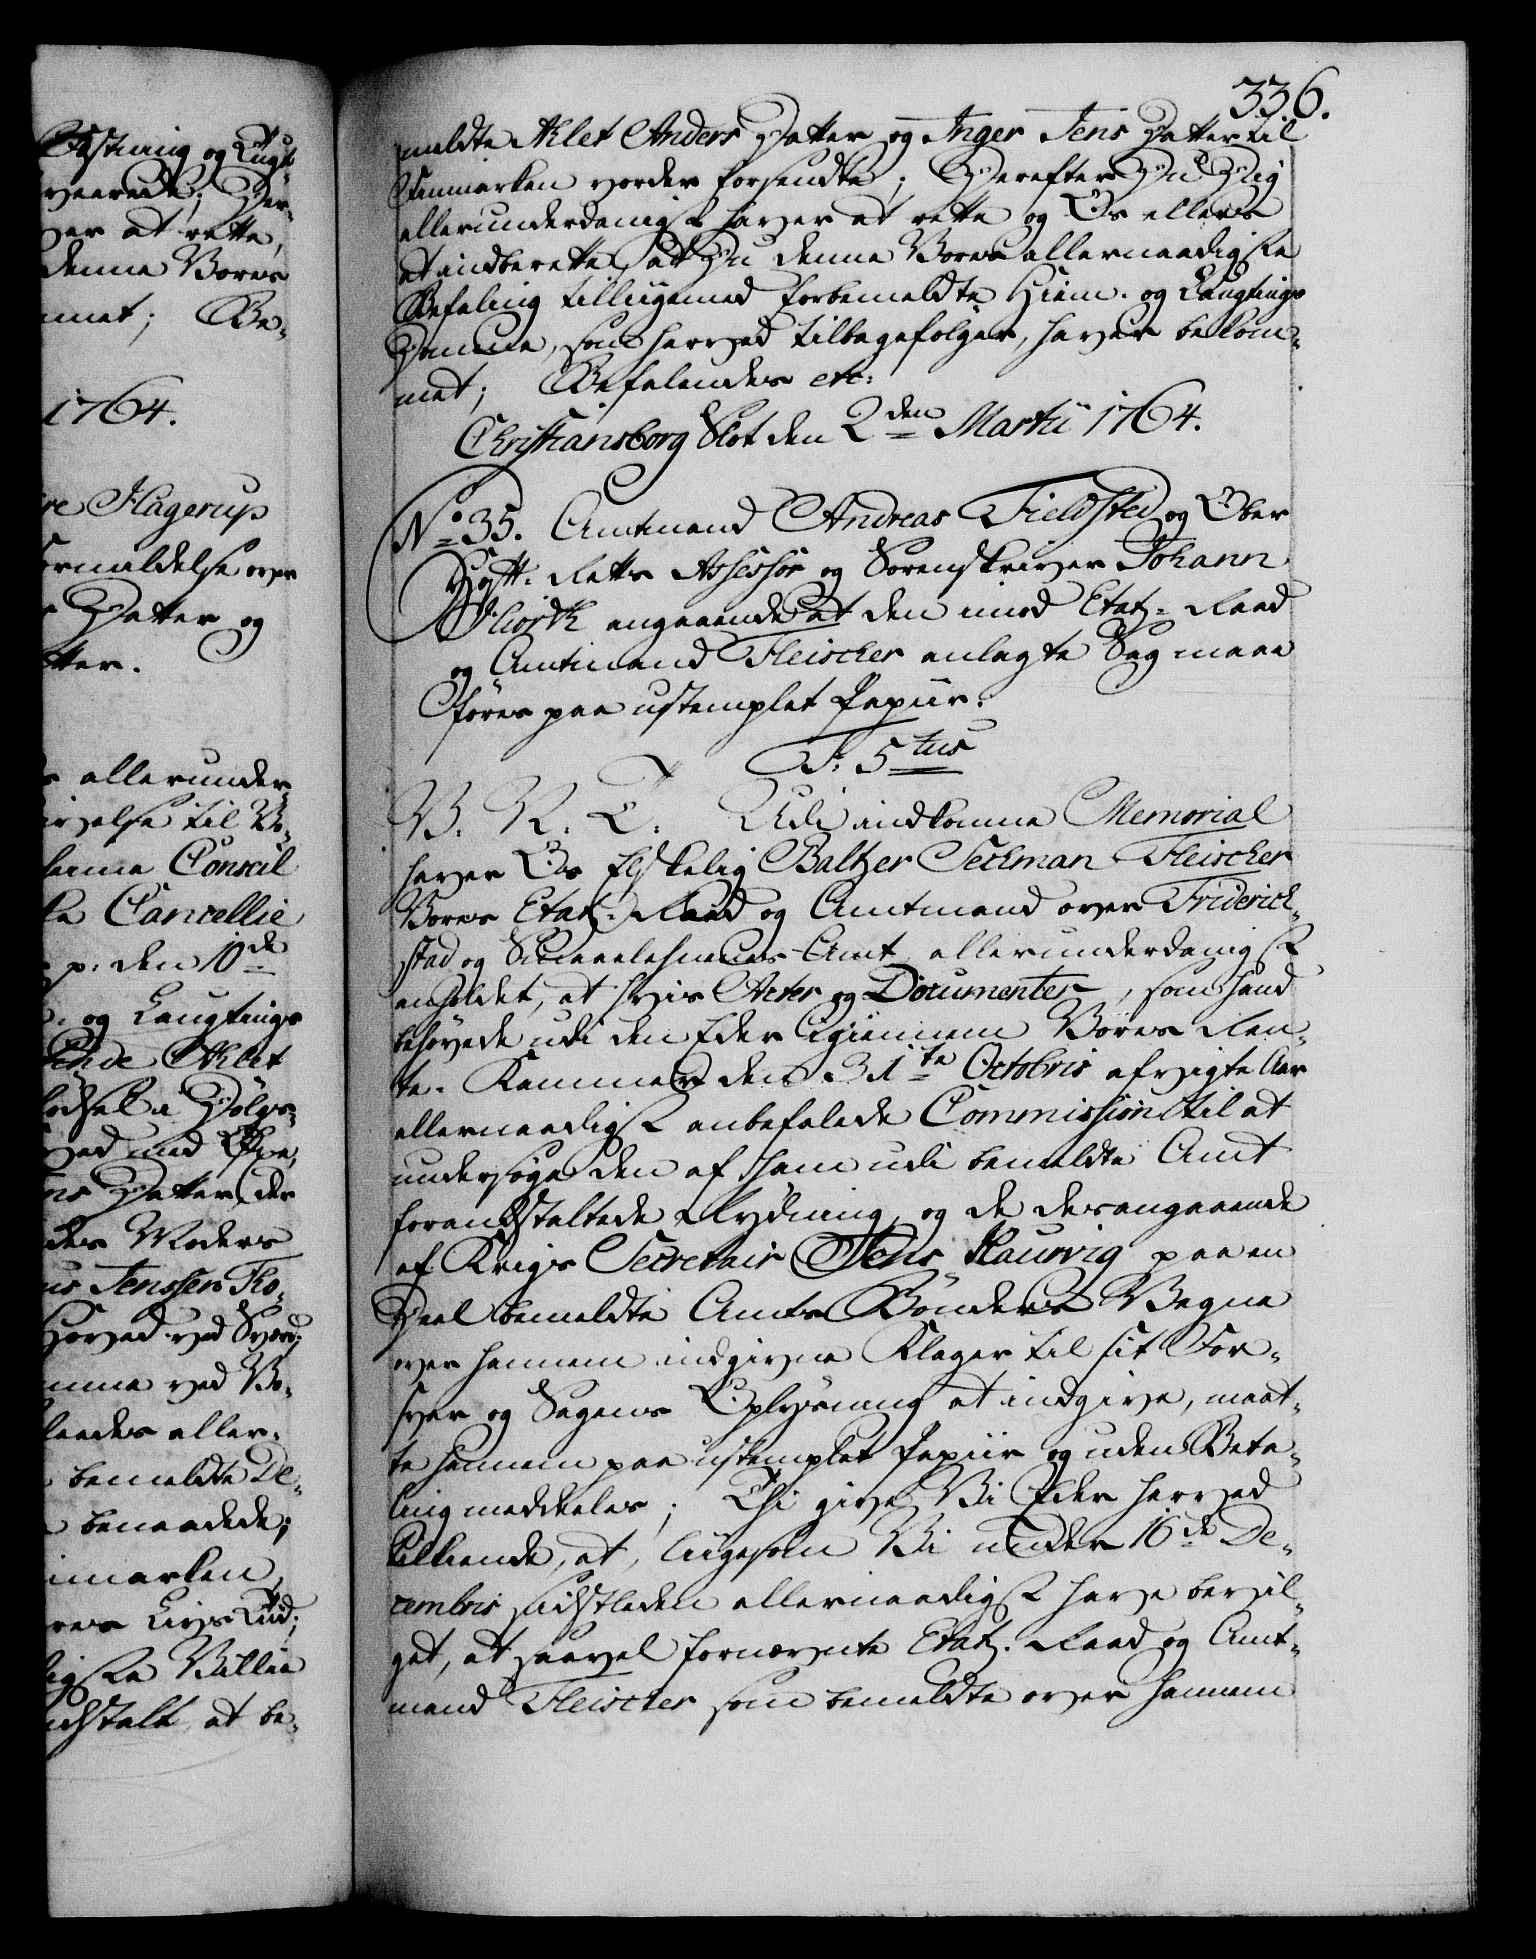 Fæstning og Tugt-
værende; Her-
ver at rette,
denne Vores
met; Be-
1764.
re Hagerup
formeldelse over
s Datter og
tter.
s allerunder-
ivelse til Vo-
heime Conseil
ke Cancellie
p: den 10de
og Laugtings
ende Aklet
ved med Øxe,
ns Datter, der
des Moders
us Jenssen
mme ved Vo-
leedes aller-
bemeldte De-
benaadede;
nmarken,
res Livs Tiid;
digste Villie
nstalt, at be-
336.
meldte Aklet Anders Datter og Inger Jens Datter til
Finmarken vorder forsendte; Herefter Du Dig
allerunderdanigst haver at rette og Os ellers
at indberette, at Du denne Vores allernaadigste
Befaling tilligemed forbemeldte Hiem- og Laugtings
Domme, som herved tilbagefølger, haver bekom-
met; Befalendes etc:
Christiansborg Slot den 2den Martii 1764.
No 35. Amtmand Andreas Fieldsted og Ober
Hof-Rets Assessor og Sorenskriver Johann
Hiorth angaaende at den imod Etatz-Raad
og Amtmand Fleischer anlagte Sag maae
føres paa ustemplet Papiir.
F: 5tus
V. V. T. Udi indkomne Memorial
haver Os Elskelig Baltzer Seckman Fleischer
Vores Etatz-Raad og Amtmand over Friderich-
stad og Smaalehnenes Amt allerunderdanigst
anholdet, at hvis Acter og Documenter, som hand
behøvede udi den Eder igiennem Vores Ren-
te-Kammer den 31te Octobris afvigte Aar
allernaadigst anbefalede Commission til at
undersøge den af ham udi bemeldte Amt
foranstaltede Rydning, og de desangaaende
af Krigs Secretair Jens Haurvig paa en
Deel bemeldte Amts Bønders Vegne
over hannem indgivne Klager til sit For-
svar og Sagens Oplysning at indgive, maat-
te hannem paa ustemplet Papiir og uden Beta-
ling meddeeles; Thi give Vi Eder herved
tilkiende, at, ligesom Vi under 16de De-
cembris sidstleden allernaadigst have bevil-
get, at saavel fornævnte Etatz-Raad og Amt-
mand Fleischer som bemeldte over hannem